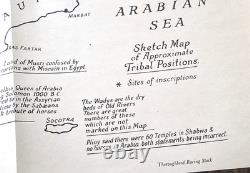 ARABIAN
SEA
MARBAT
RAS FARTAK
Sketch Map
of Approximate
Tribal Positions.
* Sites of inscriptions.
Land of Musri confused by
with Misraim in Egypt.
Queen of Arabia
Solomon 1000 B.C.
in the Assyrian
by the Sabaeans
tribute of horses
SOCOTRA
The Wadys are the dry
beds of Old Rivers
There are great
numbers of them
which are not
marked on this Map
Pliny said there were 60 Temples in Shabwa &
no horses in Arabia both statements being incorrect.
Thoroughbred Racing Stock